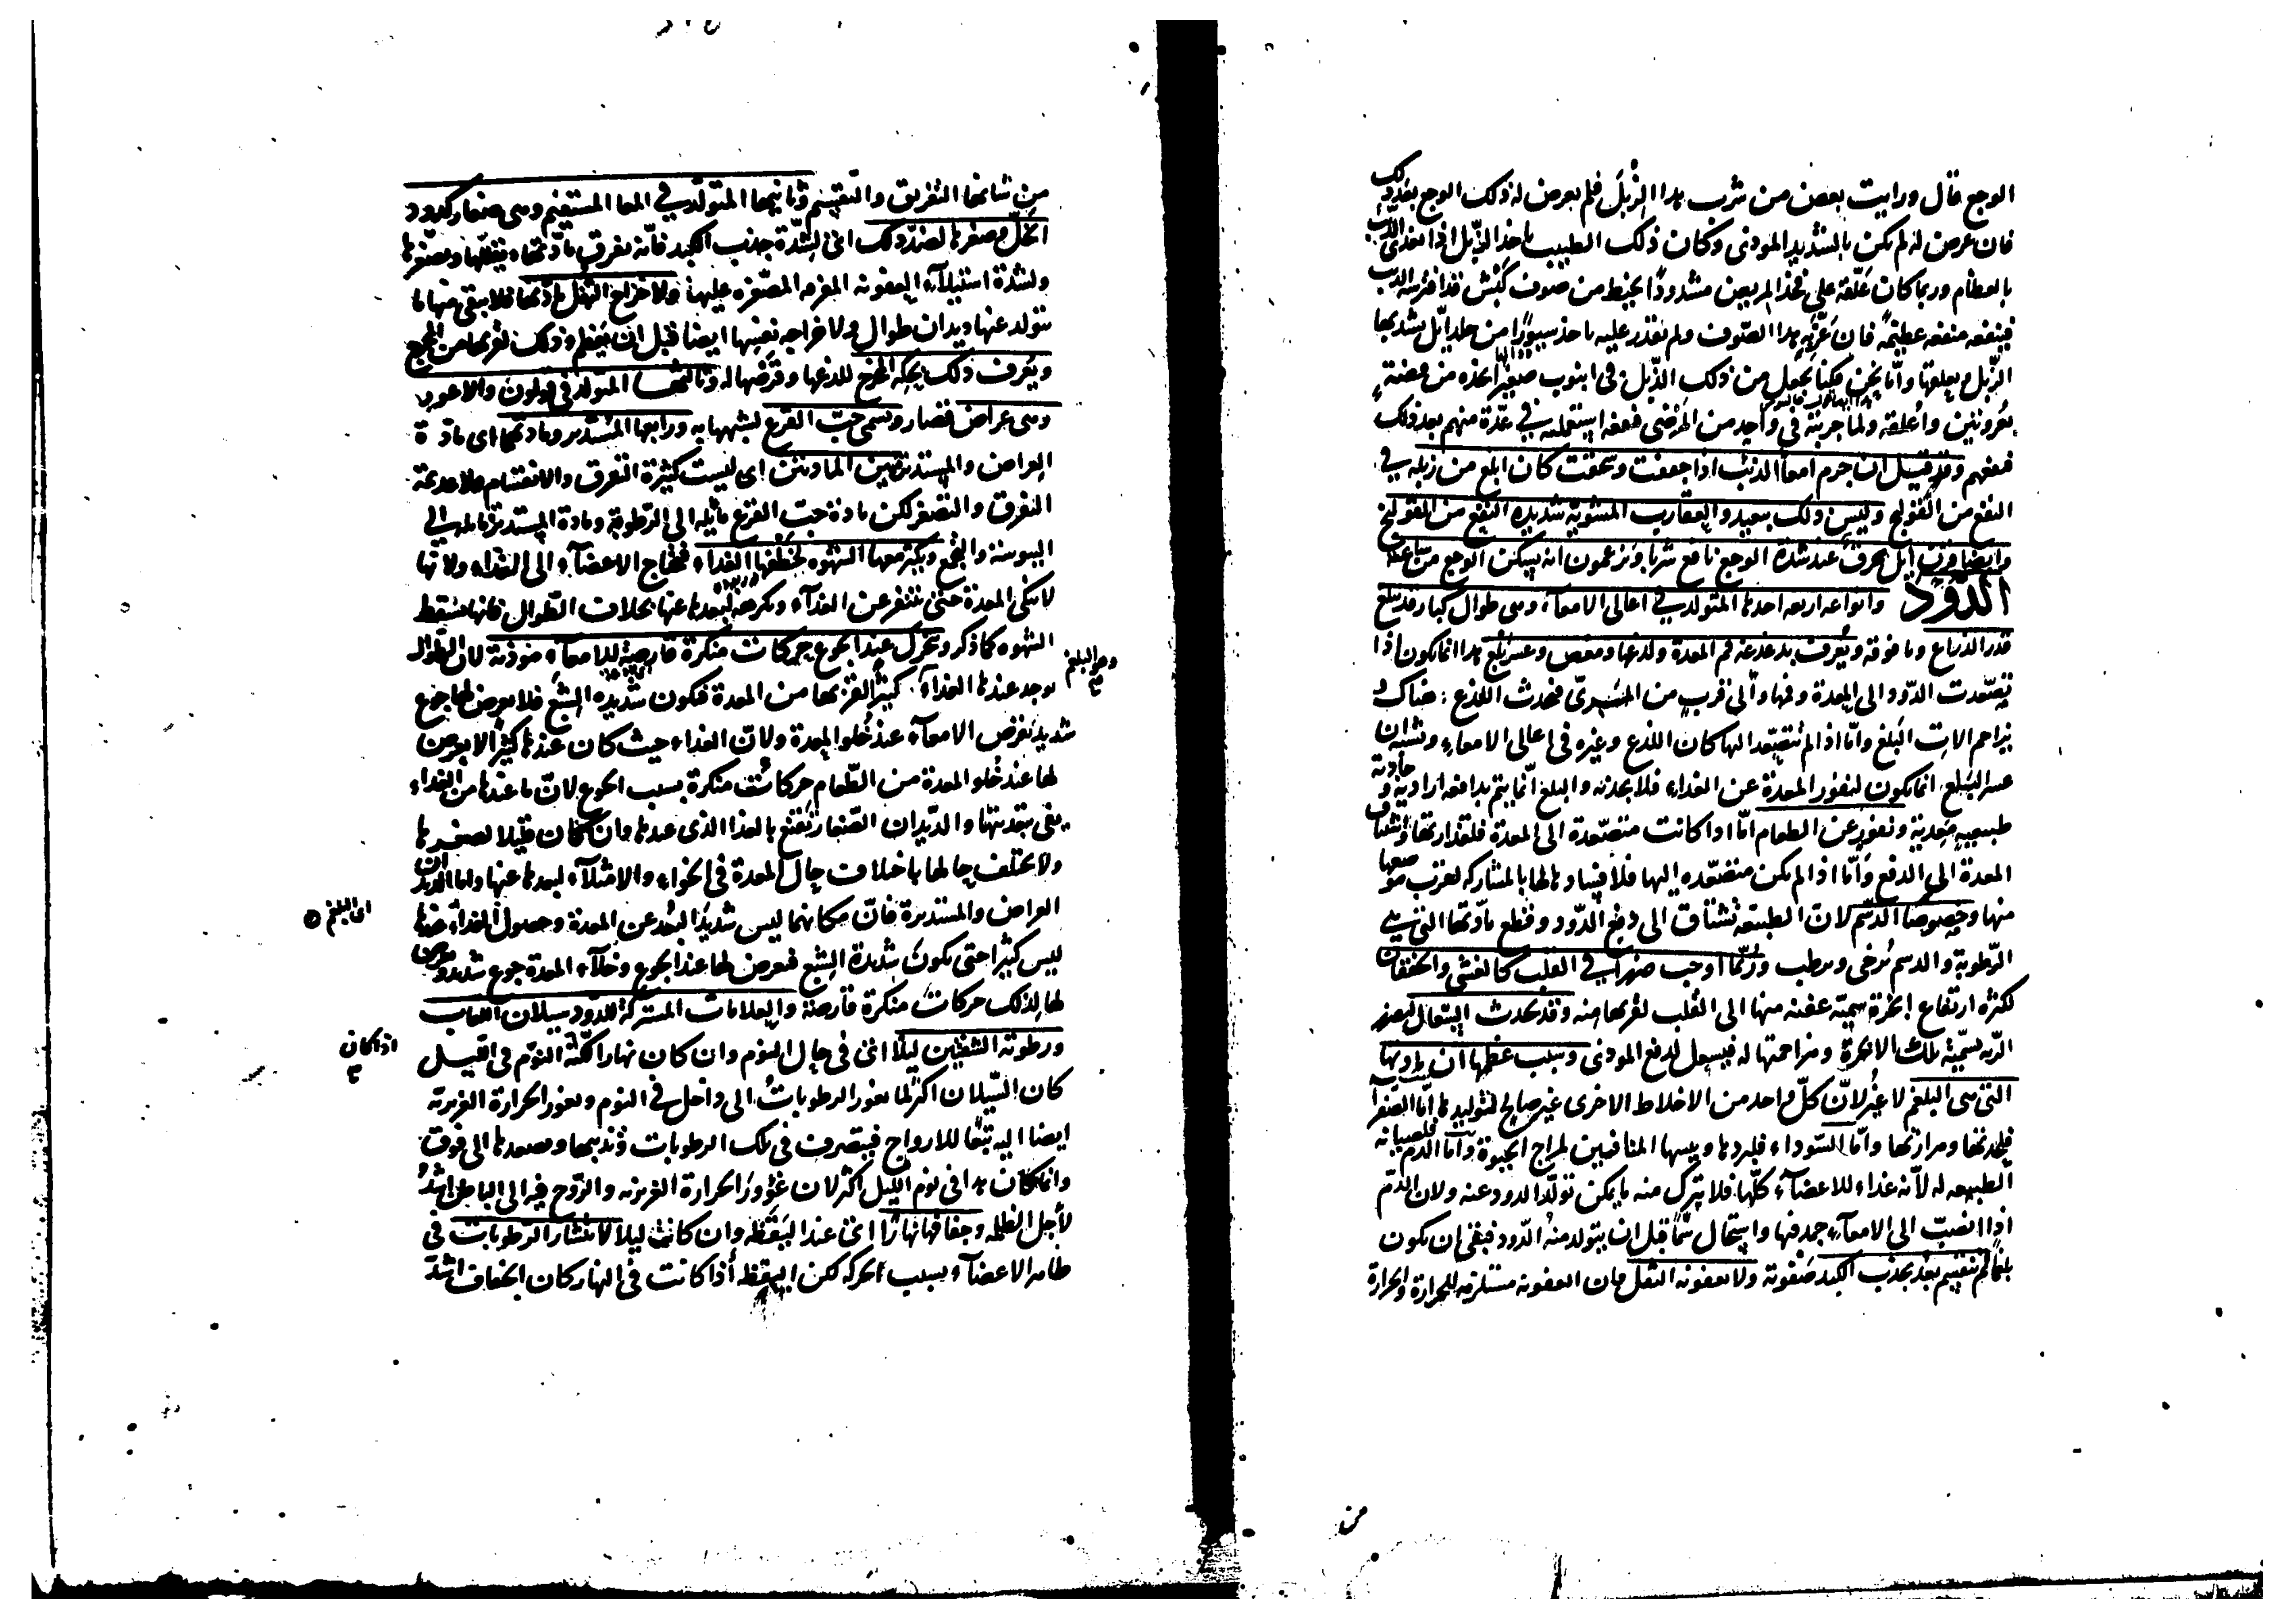 الوجع قال ورايت بعض من شرب هذا الزبل فلم يعرض له ذلك الوجع بعد ذلك
فان عرض له لم يكن بالشديد الموذى وكان ذلك الطبيب ياخذ الزبل اذا تغذى الذئب
بالعظام وربما كان علقه على فخذ المريض مشدودًا بخيط من صوف كبش قد افترسه الذئب
فينفعه منفعه عظيمة فان عزّ به هذا الصوف ولم يقدر عليه ياخذ سيورًا من جلد ايّل يشد بها
الزبل ويعلقها وأنا نحن فكنا نجعل من ذلك الزبل فى انبوب صغير نتخذه من فضة
بعروتين واعلقه ولما جربته فى واحد من المرضى فنفعه استعملته فى عدّة منهم بعد ذلك
فنفعهم وقد قيل ان جرم امعاء الذئب اذا جففت وسحقت كان ابلغ من زبله فى
النفع من القولنج وليس ذلك ببعيد والعقارب المشوية شديدة النفع من القولنج
وايضا قرن ايل يحرق عند شدة الوجع نافع شربا ويزعمون انه يسكن الوجع من ساعته
الدود وانواعه اربعه احدها المتولد فى اعالى الامعاء وهى طوال كبار قد تبلغ
قدر الذراع وما فوقه ويعرف بدغدغة فم المعدة ولذعها ومغص وعسر بلع هذا انما يكون اذا
تصعّدت الدود الى المعدة وفمها والى قرب من المرىّ فيحدث اللذع هناك و
يزاحم الات البلع وامّا اذا لم تتصعّد اليها كان اللذع وغيره فى اعالى الامعاء ويشبه ان
عسر البلع انما يكون لنفور المعدة عن الغداء فلا تجذبه والبلع انّما يتم بدافعه اراديّة و جاذبة
طبيعيه معدية ونفور عن الطعام امّا اذا كانت متصعّدة الى المعدة فلقذارتها واشتياق
المعدة الى الدفع وأمّا اذا لم يكن متصعّده اليها فلافساد حالها بالمشاركه لقرب موضعها
منها وخصوصا الدسم لان الطبيعه تشتاق الى دفع الدود وقطع مادتها التى هى
الرطوبة والدسم يرخى ويرطب وربّما اوجب ضررا فى القلب كالغشى والخفقان
لكثرة ارتفاع ابخرة سميّة عفنه منها الى القلب لقربها منه وقد يحدث السعال لتضرر
الرّيه بسميّة تلك الابخرة ومزاحمتها له فيسعل لدفع الموذى وسبب عظمها ان مادتها
التى هى البلغم لا غير لانّ كلّ واحد من الاخلاط الاخرى غير صالح لتوليدها امّا الصفرا
فلحدتها ومرارتها وامّا السوداء فلبردها ويبسها المنافيين لمزاج الحيوة وامّا الدم فلصيانه
الطبيعه له لأنه غداء للاعضاء كلّها فلا يترك منه ما يمكن تولّد الدود عنه ولان الدم
اذا انصبّ الى الامعاء جمد فيها واستحال سمّا قبل ان يتولد منه الدود فبقى ان يكون
بلغما لم تنقسم بعد بجذب الكبد صفوته ولا بعفونه الثفل فان العفونه مستلزمه للحرارة والحرارة
من
من شانها التفريق والتقسيم وثانيها المتولد فى المعا المستقيم وهى صغار كدود
الخلّ وصغرها لضدّ ذلك اعنى لشدّة جذب الكبد فانّه يفرق مادّتها ويقللها ويصغرها
ولشدة استيلاء العفونه المفرقه المصغره عليها ولاخراج الثفل مادتها فلا يبقى منها ما
يتولد عنها ديدان طوال ولاخراجه نفسها ايضا قبل ان يعظم وذلك لقربها من المخرج
ويعرف ذلك بحكة المخرج للذعها وقرضها له وثالثها المتولد فى قولون والاعور
وهى عراض قصار ويسمى حبّ القرع لشبهها به ورابعها المستدير ومادتها اى مادة
العراض والمستديرة بين المادتين اى ليست كثيرة التفرق والانقسام ولا عديمة
التفرق والتصغر لكن مادة حبّ القرع مائله الى الرطوبة ومادة المستديرة مائله الى
اليبوسة والتجمع ويكثر معها الشهوه لخطفها الغداء فتحتاج الاعضاء الى الغذاء ولانها
لا تنكى المعدة حتى تتنفر عن الغداء وتكرهه لبعدها عنها بخلاف الطوال فانها تسقط
الشهوه كما ذكر وتتحرك عند الجوع حركات منكرة قارصة للامعاء موذية لان الطوال
يوجد عندها الغداء كثيرًا لقربها من المعدة فيكون شديدة الشبع فلا يعرض لها جوع
شديد بقرض الامعاء عند خلو المعدة ولانّ الغداء حيث كان عندها كثيرًا لا يعرض
لها عند خلو المعدة من الطعام حركات منكرة بسبب الجوع لانّ ما عندها من الغداء
يفى بتغديتها والديدان الصغار تقنع بالغذا الذى عندها وان كان قليلا لصغرها
ولا يختلف حالها باختلاف حال المعدة فى الخواء والامتلاء لبعدها عنها واما الديدان
العراض والمستديرة فانّ مكانهما ليس شديد البُعد عن المعدة وحصول الغداء عندها
ليس كثيرًا حتى تكون شديدة الشبع فيعرض لها عند الجوع وخلاء المعدة جوع شديد ويعرض
لها لذلك حركات منكرة قارصة والعلامات المشتركة للدود سيلان اللعاب
ورطوبة الشفتين ليلا اعنى فى حال النوم وان كان نهارا لكنّ النوم فى الليل
كان السّيلان اكثر لما تغور الرطوبات الى داخل فى النوم وتغور الحرارة الغريزيه
ايضا اليه تبعًا للارواح فيتصرف فى تلك الرطوبات وتذيبها وتصعدها الى فوق
وانما كان هذا فى نوم الليل اكثر لان غؤور الحرارة الغريزيه والرّوح فيه الى الباطن اشدّ
لأجل الظلمه وجفافها نهارًا اعنى عند اليقظه وان كانت ليلا لانتشار الرطوبات فى
ظاهر الاعضاء بسبب الحركه لكن اليقظه اذا كانت فى النهار كان الجفاف اشدّ
وهو البلغم
اى البلغم
اذا كان